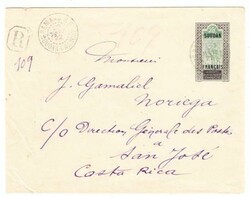 R
109
SOUDAN
FRANÇAIS
Monsieur
J. Gamaliel
Noriega
C/o Direction Générale des Postes
a
San José
Costa Rica